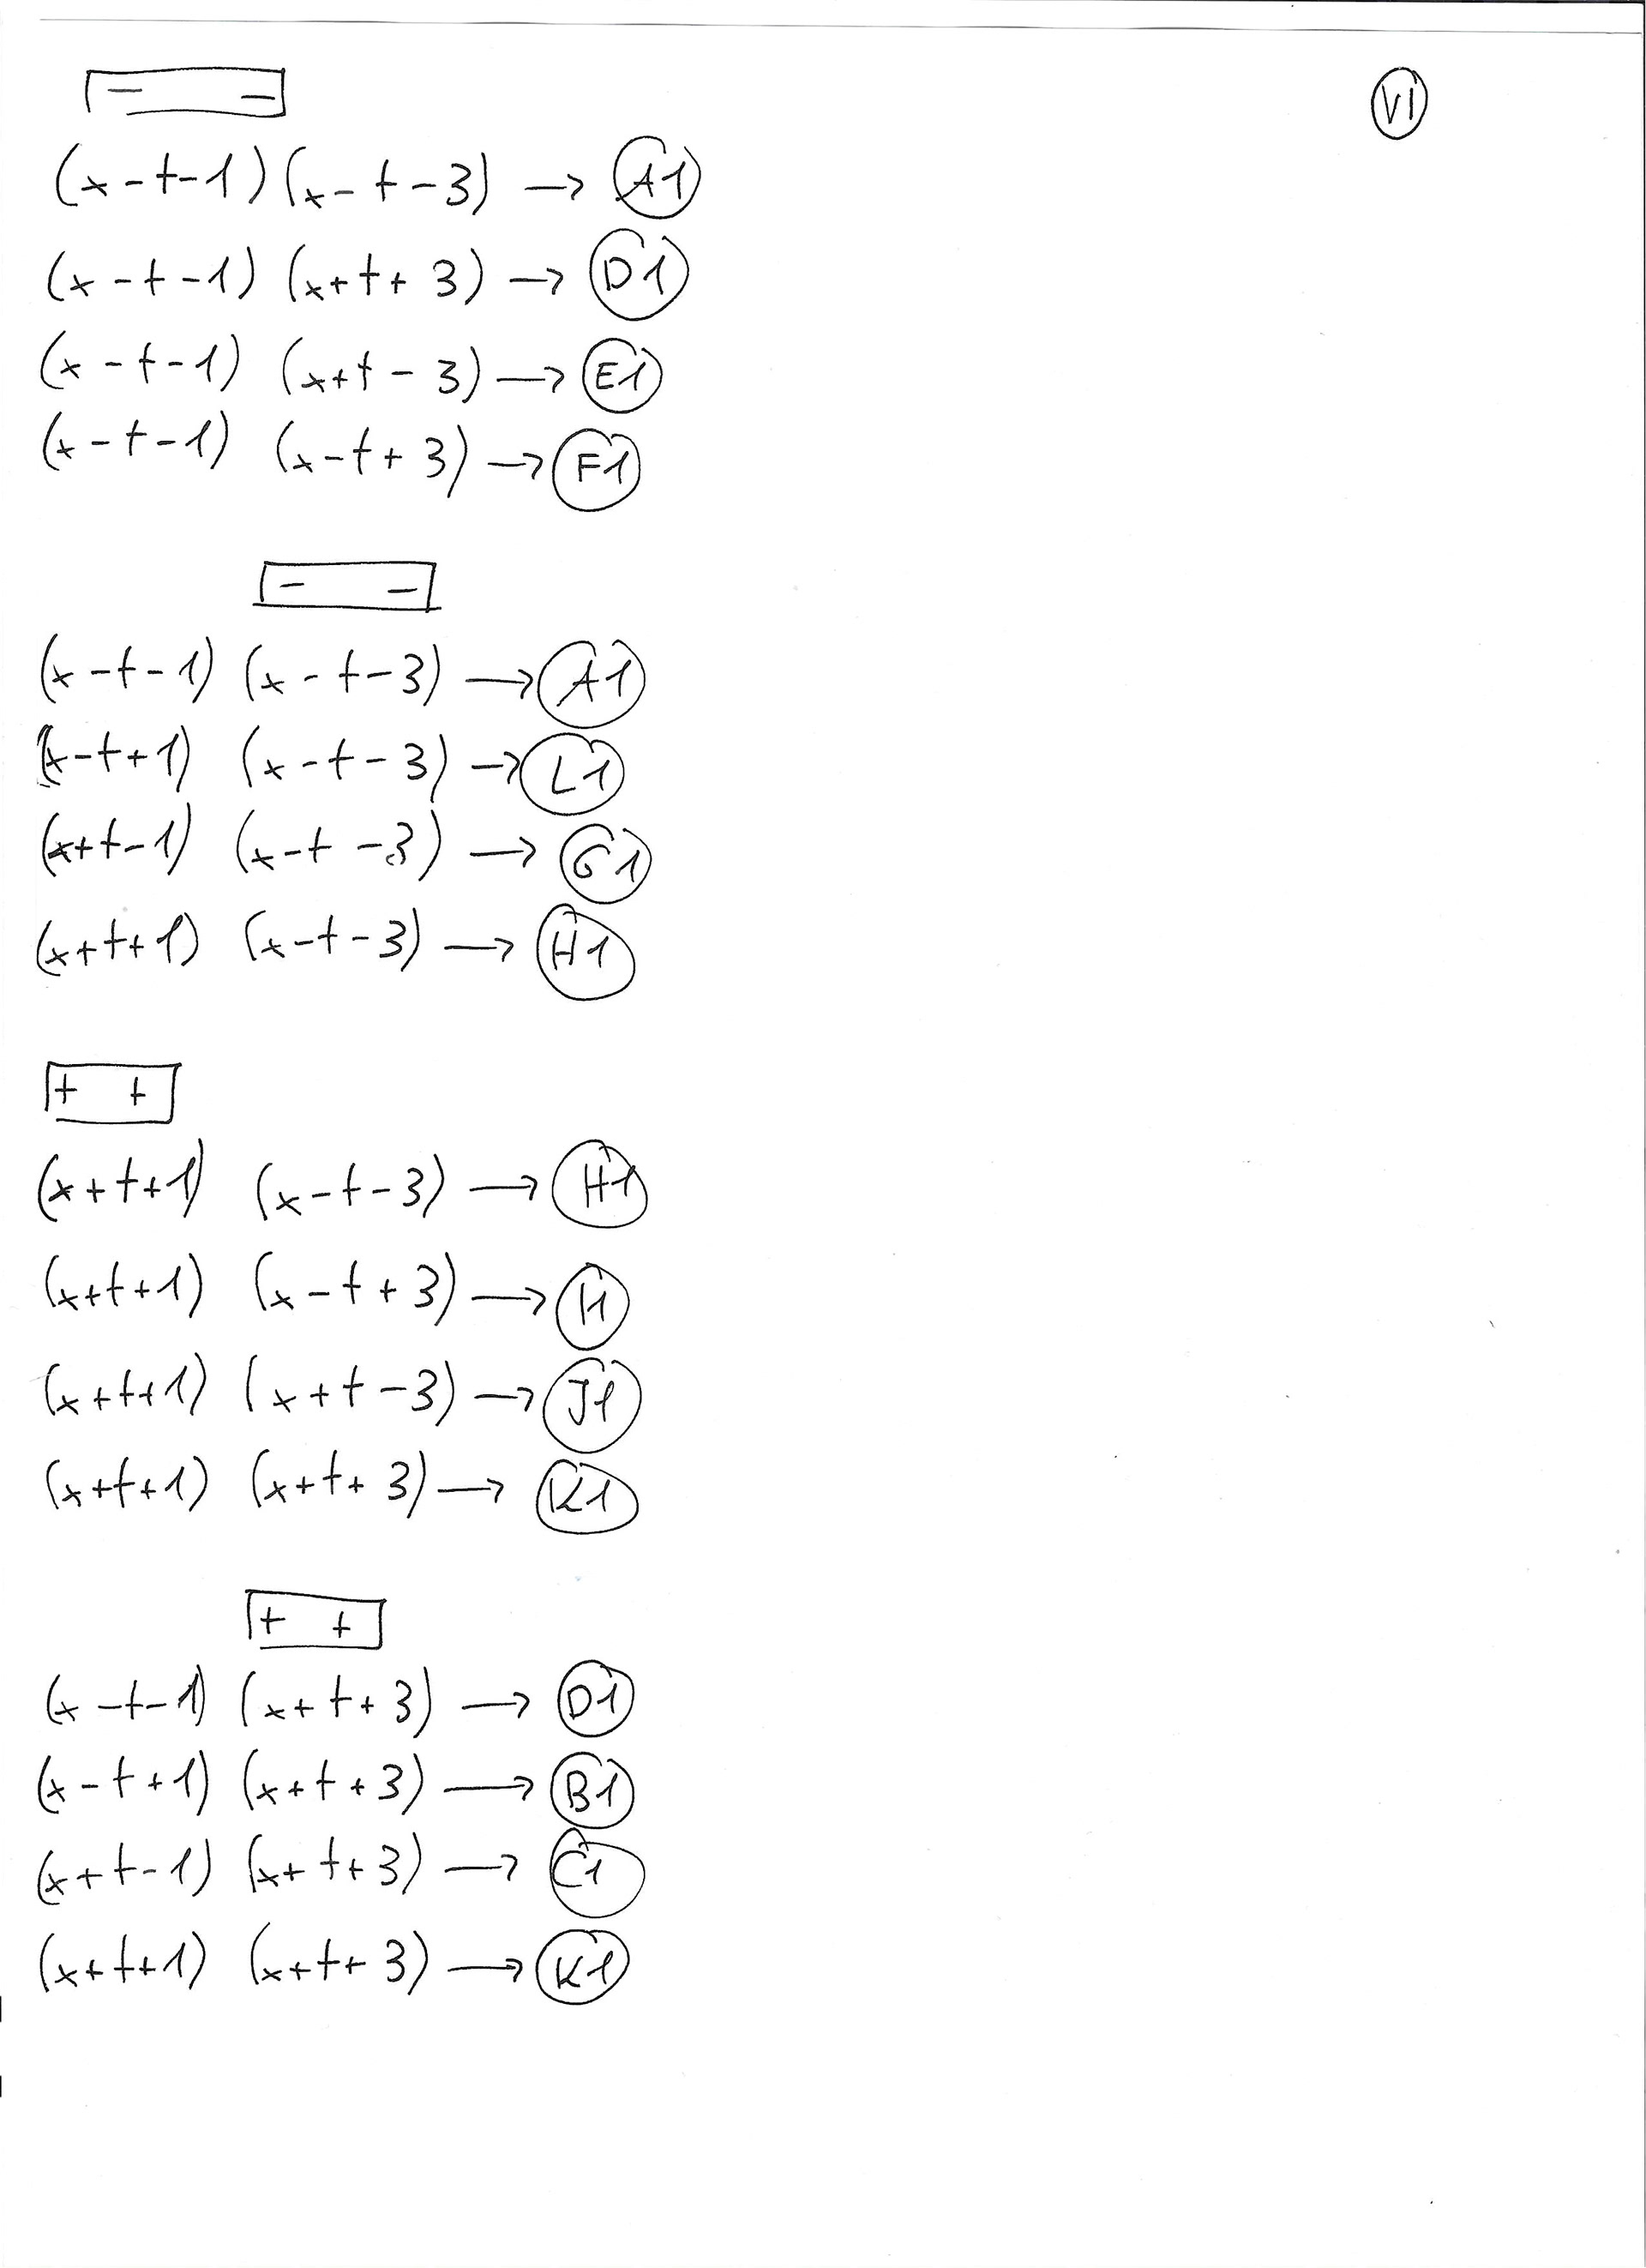 − − VI
(x-t-1)(x-t-3) → A1
(x-t-1) (x+t+3) → D1
(x-t-1) (x+t-3) → E1
(x-t-1) (x-t+3) → F1
− −
(x-t-1) (x-t-3) → A1
(x-t+1) (x-t-3) → L1
(x+t-1) (x-t-3) → G1
(x+t+1) (x-t-3) → H1
+ +
(x+t+1) (x-t-3) → H1
(x+t+1) (x-t+3) → I1
(x+t+1) (x+t-3) → J1
(x+t+1) (x+t+3) → K1
+ +
(x-t-1) (x+t+3) → D1
(x-t+1) (x+t+3) → B1
(x+t-1) (x+t+3) → C1
(x+t+1) (x+t+3) → K1